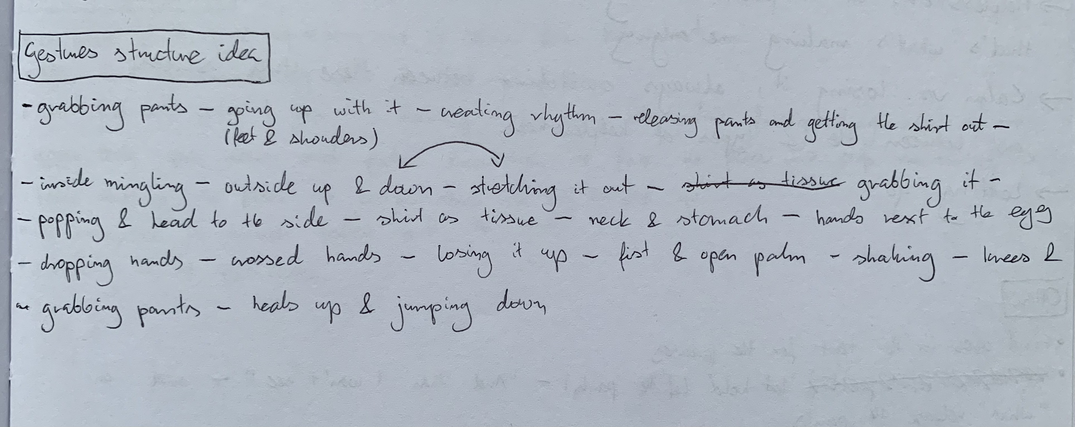 Gestures structure idea
- grabbing pants - going up with it - creating rhythm - releasing pants and getting the shirt out -
(feet & shouders)
- inside mingling - outside up & down - stretching it out - shirt as tissue grabbing it -
- popping & head to the side - shirt as tissue - neck & stomach - hands next to the eyes
- dropping hands - crossed hands - losing it up - fist & open palm - shaking - knees &
- grabbing pants - heals up & jumping down